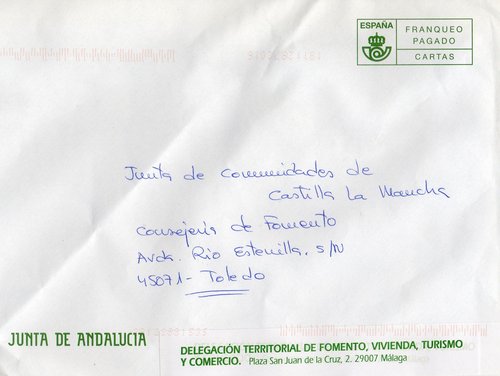 ESPAÑA
FRANQUEO
PAGADO
CARTAS
Junta de Comunidades de
Castilla La Mancha
Consejería de Fomento
Avda. Rio Estenilla, s/N
45071 - Toledo
JUNTA DE ANDALUCIA
DELEGACIÓN TERRITORIAL DE FOMENTO, VIVIENDA, TURISMO
Y COMERCIO. Plaza San Juan de la Cruz, 2. 29007 Málaga